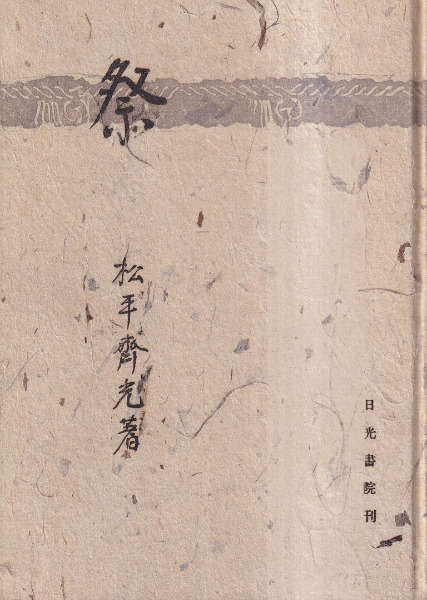 祭
松平齊光著
日光書院刊